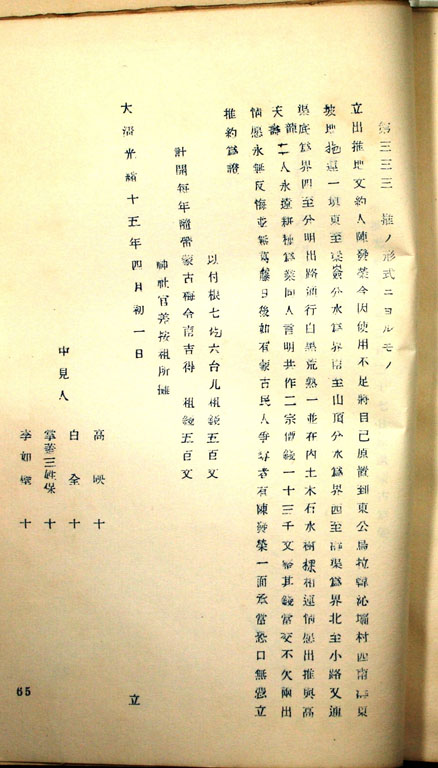 第三三三 推ノ形式ニヨルモノ
立出推地文約人陳發榮今因使用不足將自己原置到東公烏拉韓沁壩村西南溝東
坡地拖連一塡東至梁嶺分水爲界南至山頂分水爲界西至溝渠爲界北至小路又通
渠底爲界四至分明出路通行自黑荒熟一並在內土木石水樹稞相連情愿出推與高
天龍二人永遠耕種爲業同人言明共作二宗價錢一十三千文 其錢當交不欠兩出
情愿永無反悔並無葛藤日後如有蒙古民人爭 者有陳發榮一面承當恐口無憑立
推約爲證
以付根七炮六台几租錢五百文
計開每年隨帶蒙古梅令南吉得 租錢五百文
神社官差按租所攤
大淸光緖十五年四月初一日 立
中見人
高映十
白全十
三姓保十
李如 十
65